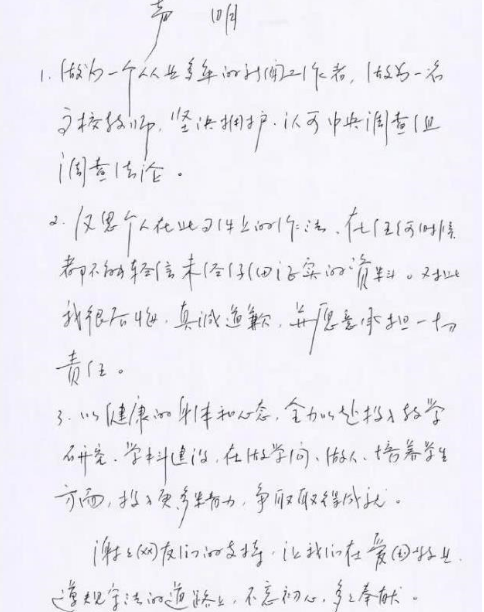 声明
1. 做为一个从业多年的新闻工作者，做为一名
高校教师，坚决拥护、认可中央调查组
调查结论。
2. 反思个人在此事件上的作法，在任何时候
都不能轻信未经仔细证实的资料。对此
我很后悔，真诚道歉，并愿意承担一切
责任。
3. 以健康的身体和心态，全力以赴投入教学
研究、学科建设，在做学问、做人、培养学生
方面，投入更多努力，争取取得成就。
谢谢网友们的支持，让我们在爱国敬业
遵规守法的道路上，不忘初心，多多奉献。